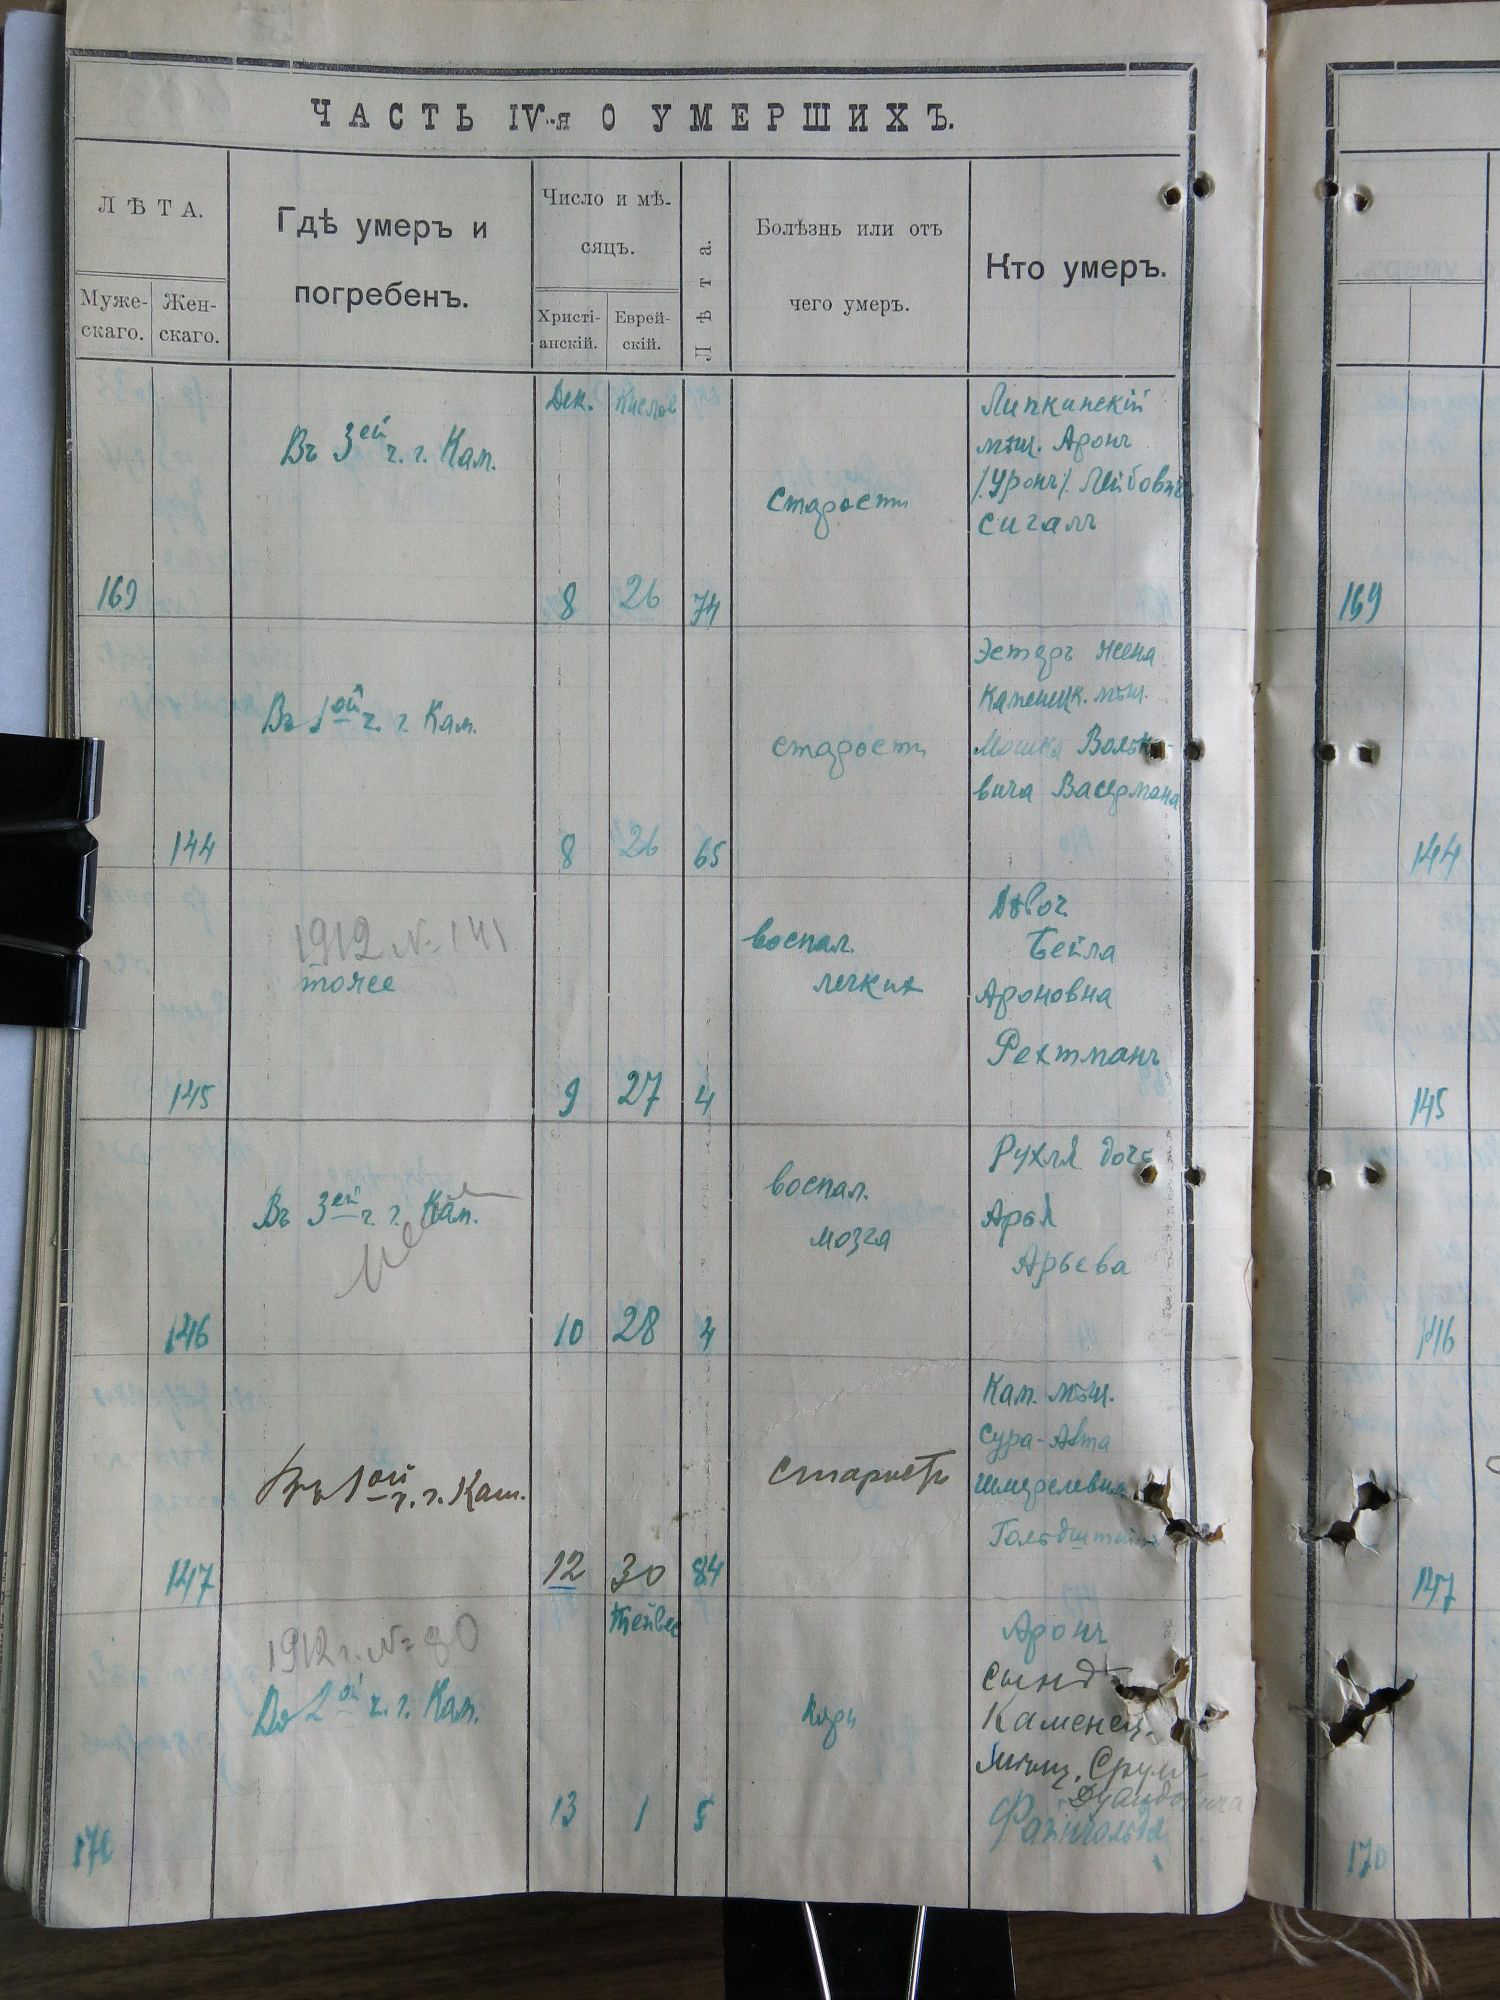 ЧАСТЬ IV-я О УМЕРШИХЪ.
ЛѢТА.
Муже-
скаго.
Жен-
скаго.
Гдѣ умеръ и
погребенъ.
Число и мѣ-
сяцъ.
Христі-
анскій.
Еврей-
скій.
Лѣта.
Болѣзнь или отъ
чего умеръ.
Кто умеръ.
Дек.
Кислев
Въ 3ей ч. г. Кам.
старости
Липканскій
мѣщ. Аронъ
/Уронъ/ Лейбовичъ
Сигалъ
169
8
26
74
169
Въ 1ой ч. г. Кам.
старости
Эстеръ жена
Каменецк. мѣщ.
Мошка Вольк-
вича Васермана
144
8
26
65
144
1912 № 141
тоже
воспал.
легкихъ
Дѣвоч
Бейла
Ароновна
Рехтманъ
145
9
27
4
145
Въ 3ей ч. г. Кам.
воспал.
мозга
Рухля дочь
Арья
Арьева
146
10
28
4
146
Въ 1ой ч. г. Кам.
Старость
Кам. мѣщ.
Сура-Авта
Шмерелевна
Гольдштейнъ
147
12
30
84
147
Тейвес
1912 г. № 80
Во 2ой ч. г. Кам.
Корь
Аронъ
сынъ
Каменец.
мѣщ. Сруля
Файнгольда
170
13
1
5
170